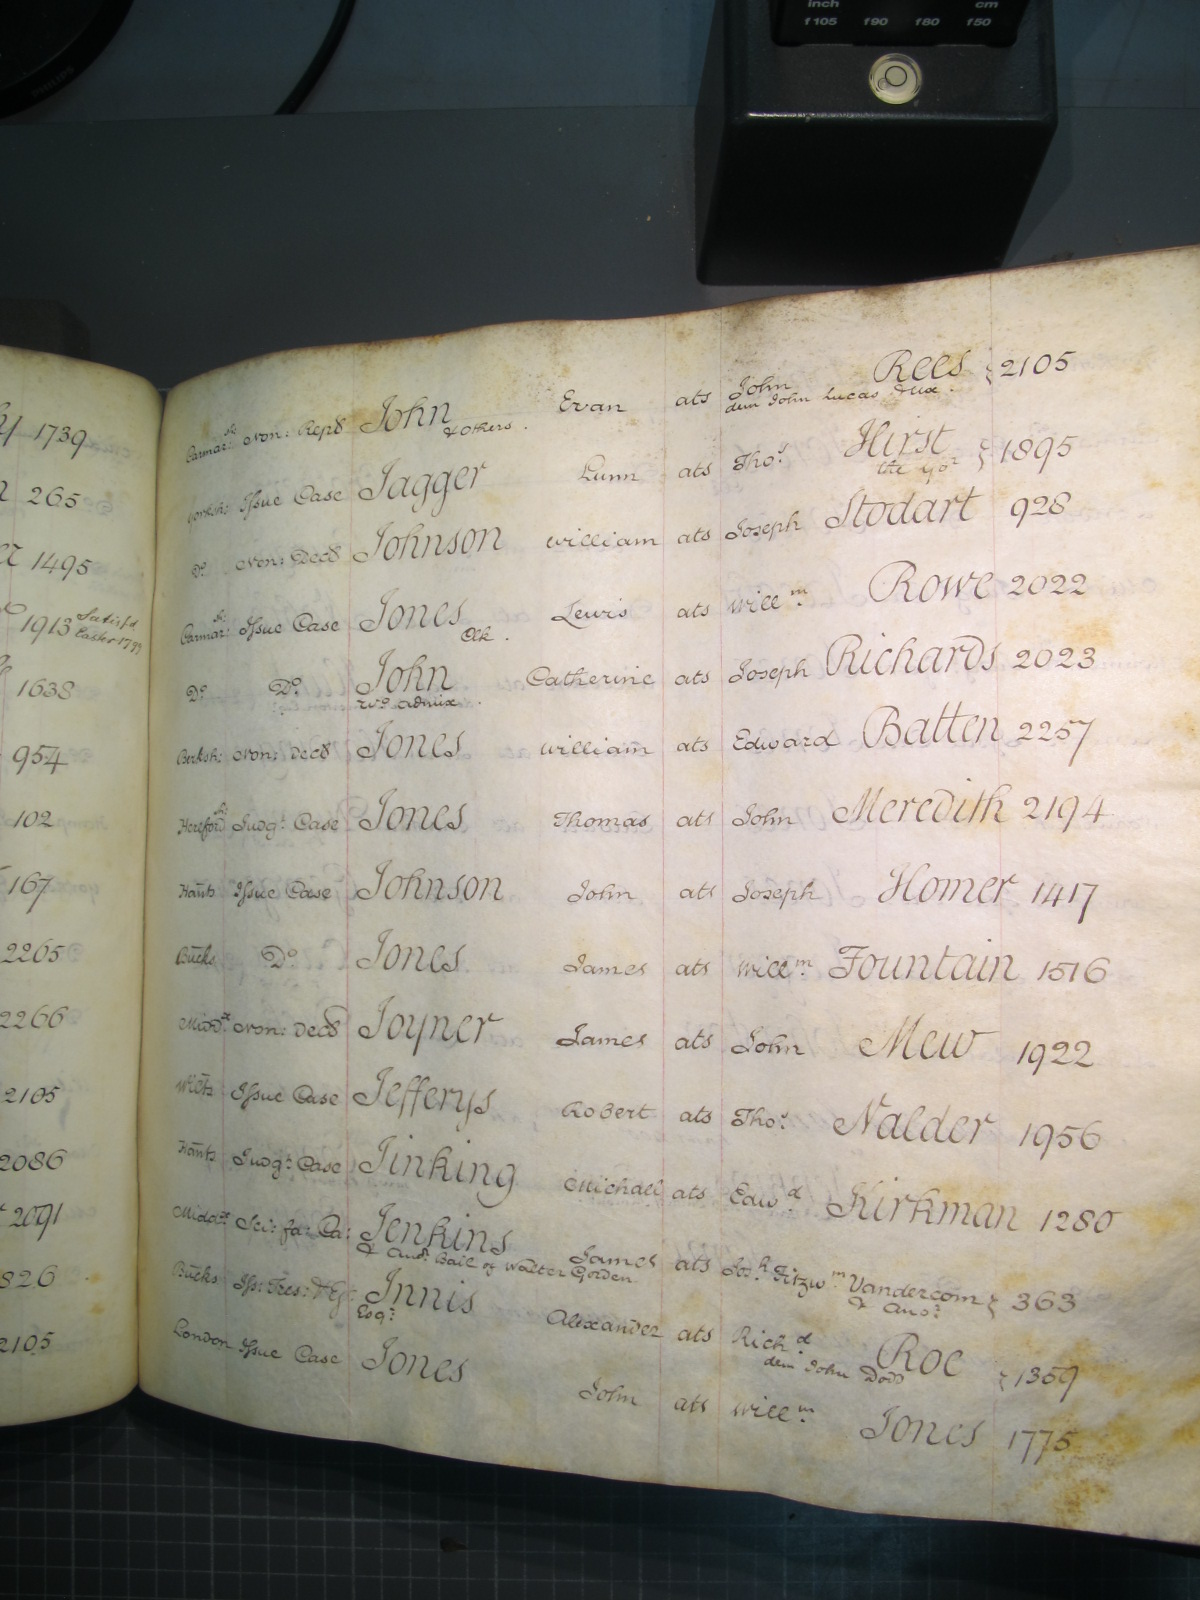 inch cm
f105 f90 f80 f50
PHILIPS
1739
265
1495
1913 Satisfd Easter 1799
1638
954
102
167
2265
2266
2105
2086
2091
826
2105
Carmar: sh: Non: Repd John & others. Evan ats John Rees 2105
dem John Lucas & ux.
Yorksh: Issue Case Jagger Lunn ats Thos. Hirst 1895
the yor
Do. Non: Decd Johnson William ats Joseph Stodart 928
Carmar: sh: Issue Case Jones Clk. Lewis ats Willm. Rowe 2022
Do. Do. John Catherine ats Joseph Richards 2023
wo. admix.
Berksh: Non: Decd Jones William ats Edward Batten 2257
Hereford sh: Judgt. Case Jones Thomas ats John Meredith 2194
Hants Issue Case Johnson John ats Joseph Homer 1417
Bucks Do. Jones James ats Willm. Fountain 1516
Middx Non: Decd Joyner James ats John Mew 1922
Wilts Issue Case Jefferys Robert ats Thos. Nalder 1956
Hants Judgt. Case Jinking Michall ats Edwd. Kirkman 1280
Middx Sci: fa: Ca: Jenkins James ats Josh. Fitzwm Vandercom 363
& anor. Bail of Walter Gorden & anor.
Bucks Iss: Tres: & Ej: Innis Alexander ats Richd. Roe 1359
Esqr. dem John Dod
London Issue Case Jones John ats Willm. Jones 1775